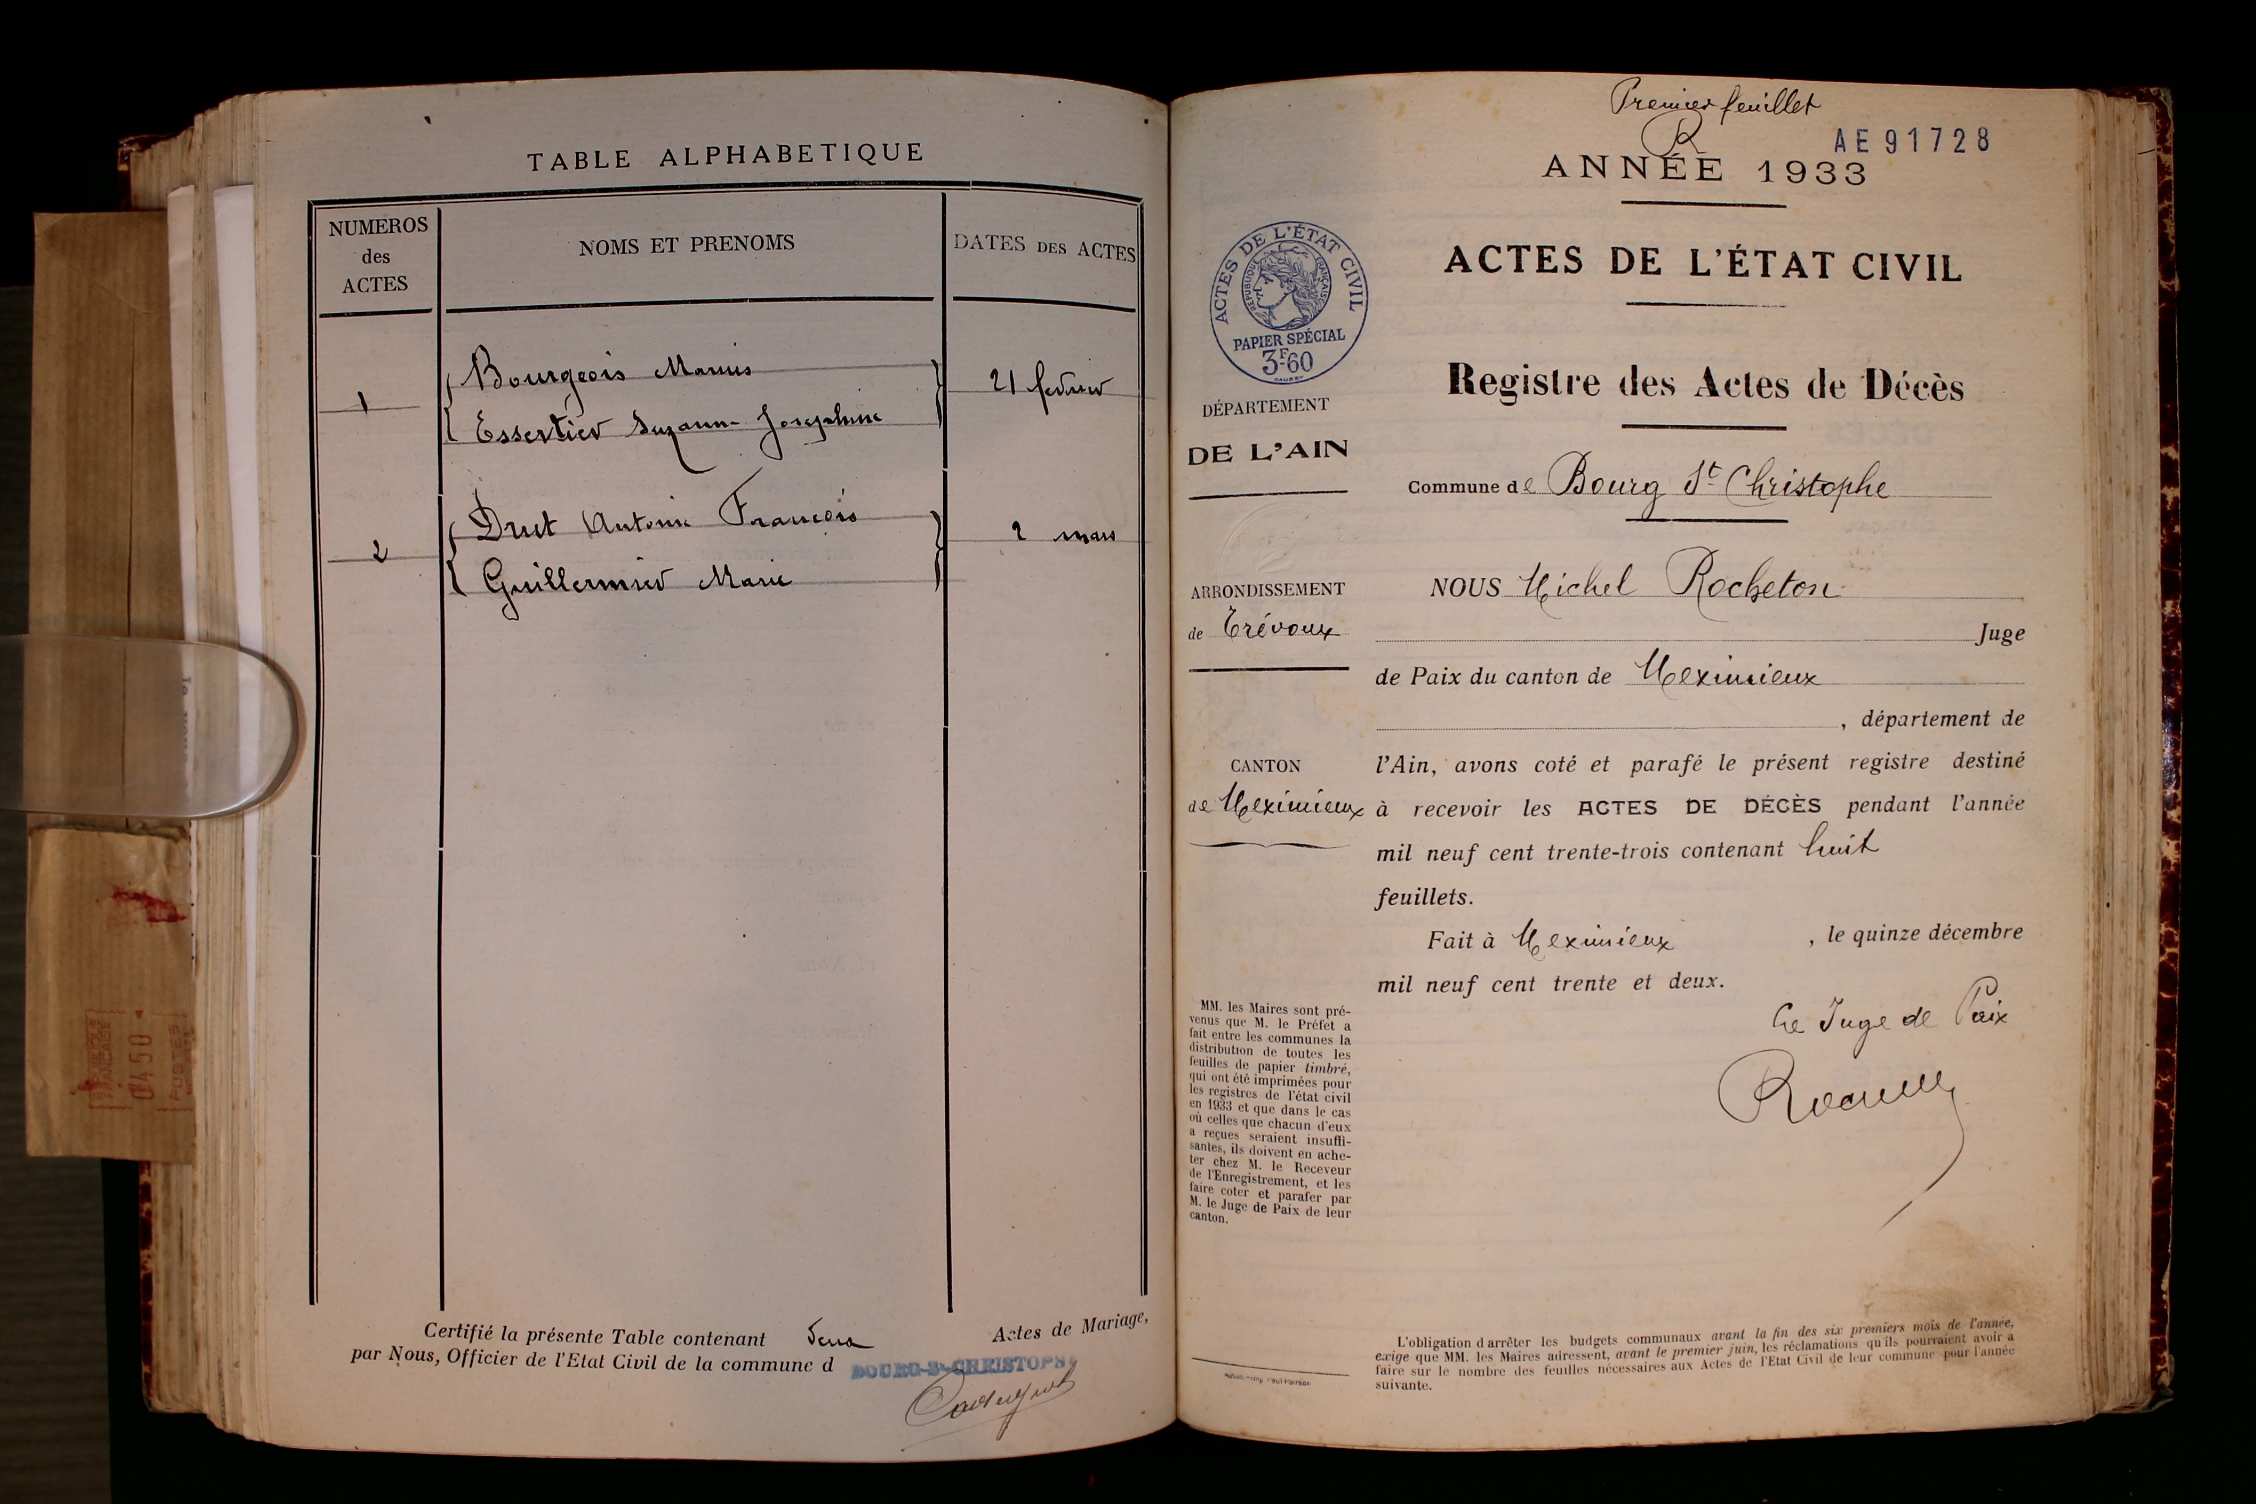 TABLE ALPHABETIQUE
NUMEROS
des
ACTES
NOMS ET PRENOMS
DATES DES ACTES
1
Bourgeois Marius
Essertier Suzanne Josephine
21 fevrier
2
Drut Antoine François
Guillermier Marie
2 mars
Certifié la présente Table contenant Deux Actes de Mariage,
par Nous, Officier de l'Etat Civil de la commune d BOURG-St-CHRISTOPHE
Premier feuillet
R
AE91728
ANNÉE 1933
ACTES DE L'ÉTAT CIVIL
RÉPUBLIQUE FRANÇAISE
PAPIER SPÉCIAL
3F.60
ACTES DE L'ÉTAT CIVIL
Registre des Actes de Décès
DÉPARTEMENT
DE L'AIN
Commune de Bourg St Christophe
ARRONDISSEMENT
de Trévoux
CANTON
de Meximieux
NOUS Michel Rocheton
Juge
de Paix du canton de Meximieux
, département de
l'Ain, avons coté et parafé le présent registre destiné
à recevoir les ACTES DE DÉCÈS pendant l'année
mil neuf cent trente-trois contenant huit
feuillets.
Fait à Meximieux , le quinze décembre
mil neuf cent trente et deux.
Le Juge de Paix
MM. les Maires sont pré-
venus que M. le Préfet a
fait entre les communes la
distribution de toutes les
feuilles de papier timbré,
qui ont été imprimées pour
les registres de l'état civil
en 1933 et que dans le cas
où celles que chacun d'eux
a reçues seraient insuffi-
santes, ils doivent en ache-
ter chez M. le Receveur
de l'Enregistrement, et les
faire coter et parafer par
M. le Juge de Paix de leur
canton.
L'obligation d'arrêter les budgets communaux avant la fin des six premiers mois de l'année,
exige que MM. les Maires adressent, avant le premier juin, les réclamations qu'ils pourraient avoir à
faire sur le nombre des feuilles nécessaires aux Actes de l'Etat Civil de leur commune pour l'année
suivante.
0450
POSTES